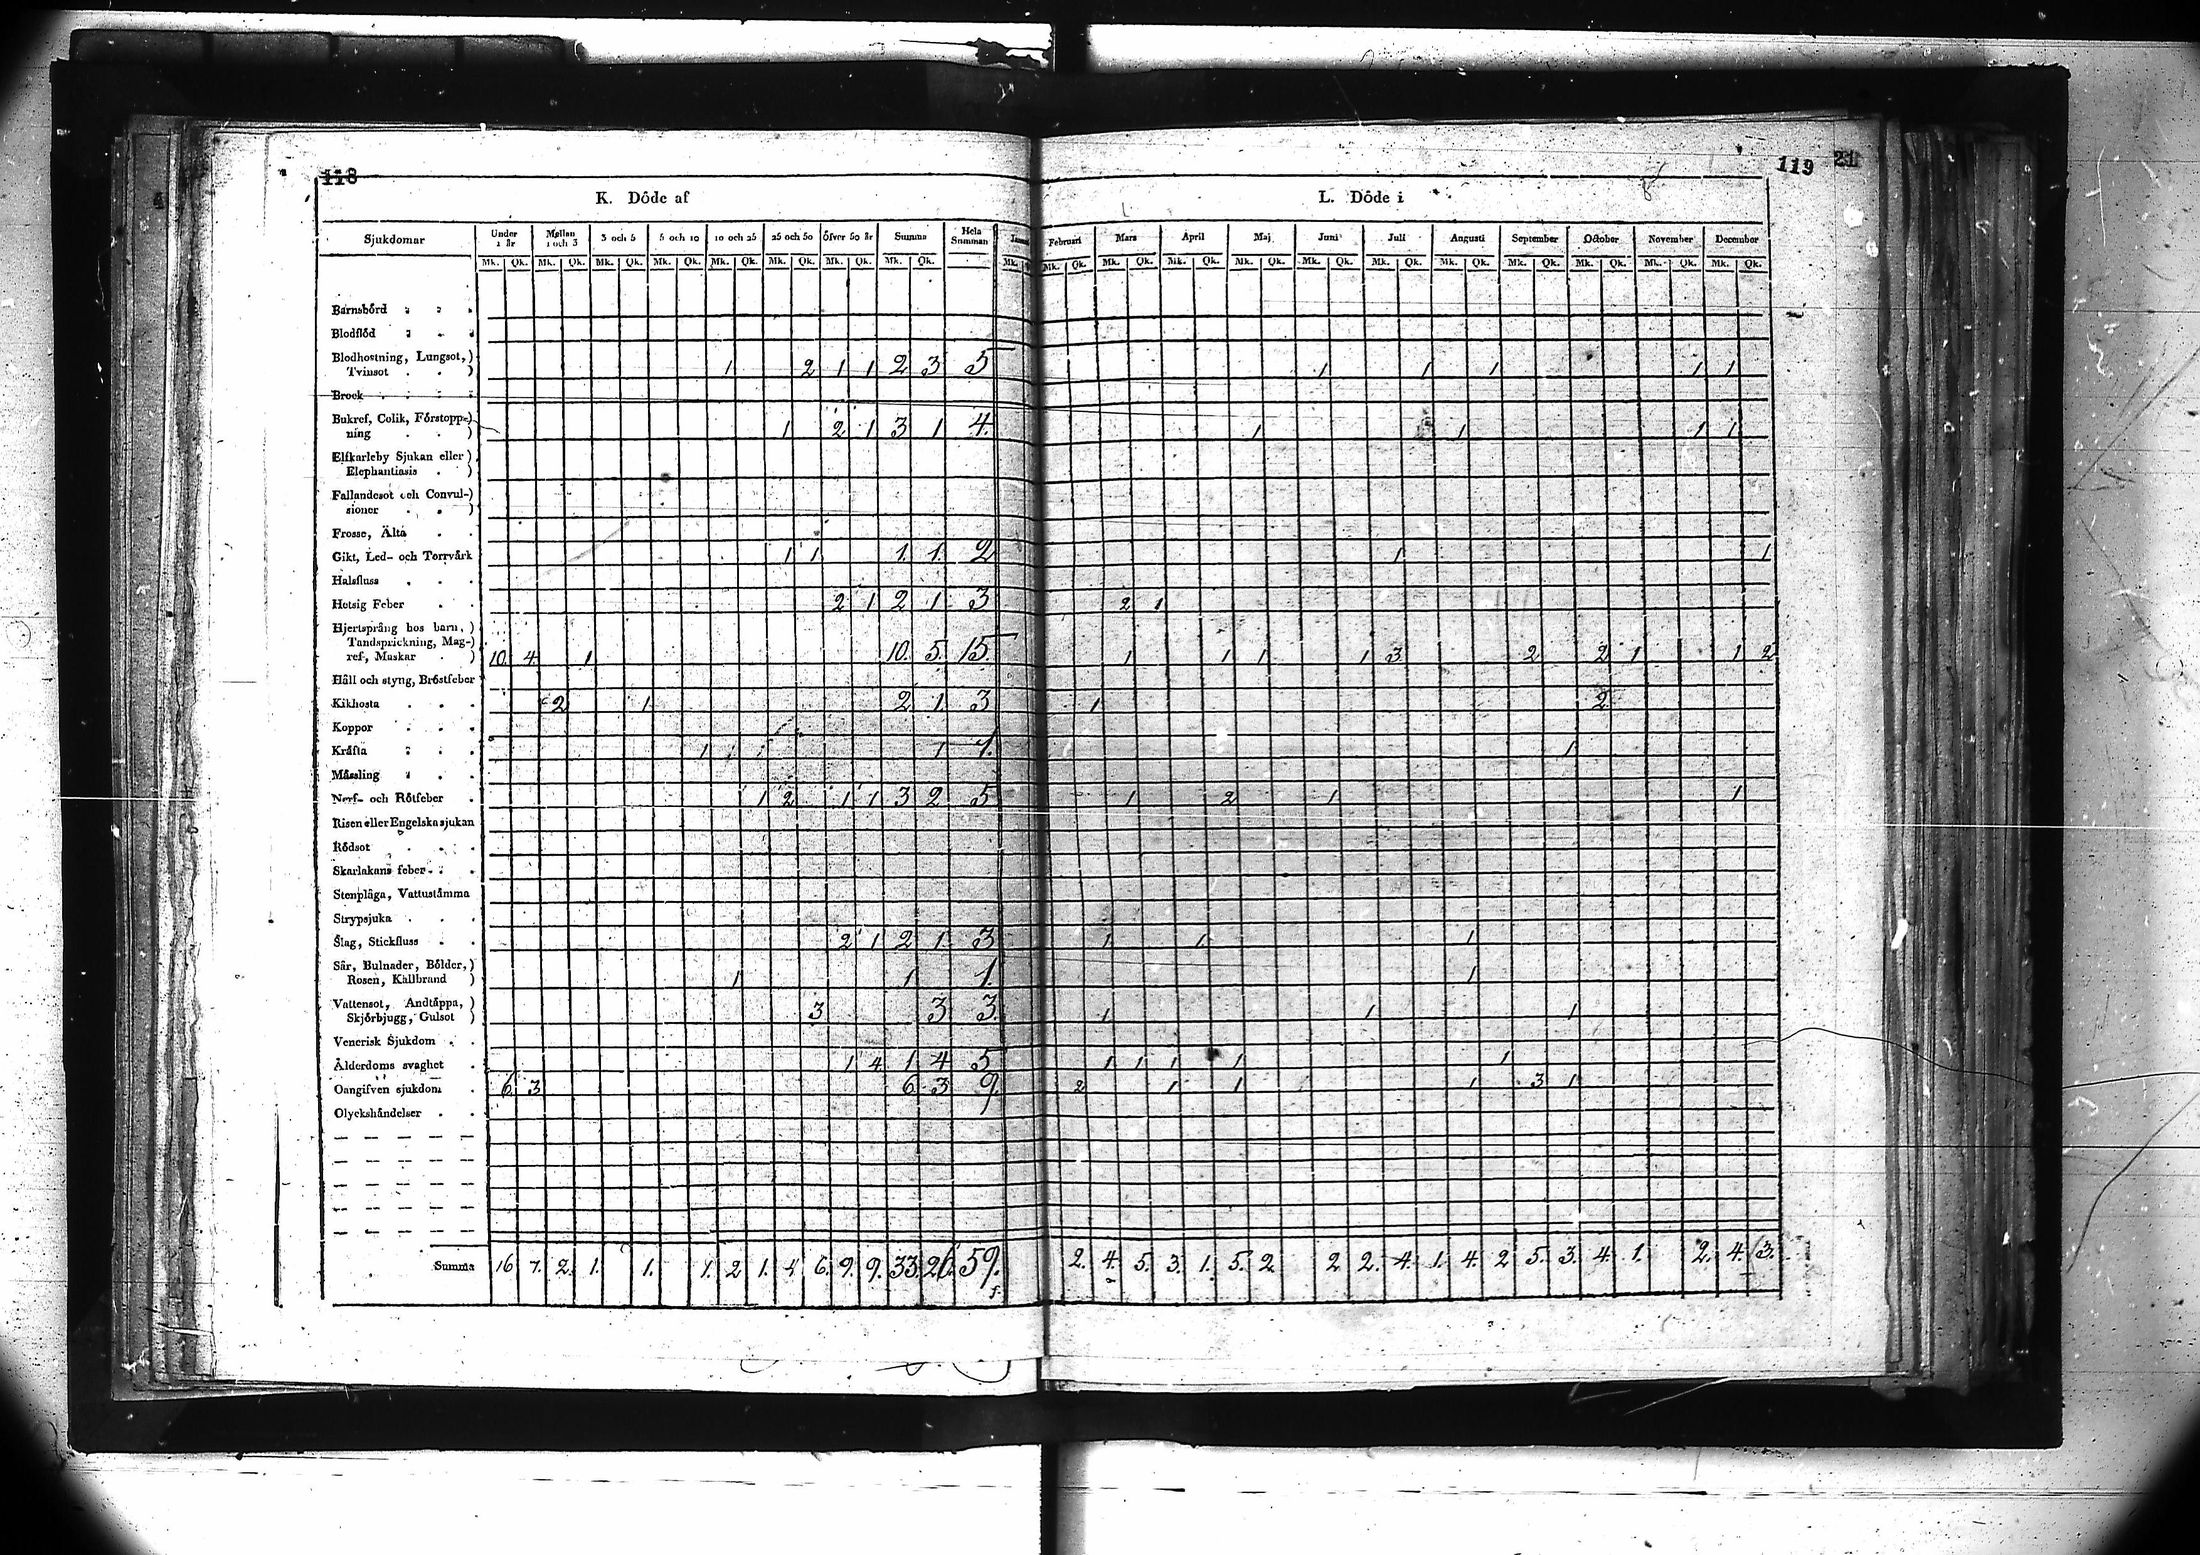 118
119 21
K. Döde af
L. Döde i
Sjukdomar Under 1 år Mellan 1 och 3 3 och 5 5 och 10 10 och 25 25 och 50 Öfver 50 år Summa Hela Summan
Februari Mars April Maj Juni Juli Augusti September October November December
Mk. Qk. Mk. Qk. Mk. Qk. Mk. Qk. Mk. Qk. Mk. Qk. Mk. Qk. Mk. Qk.
Mk. Mk. Qk. Mk. Qk. Mk. Qk. Mk. Qk. Mk. Qk. Mk. Qk. Mk. Qk. Mk. Qk. Mk. Qk. Mk. Qk. Mk. Qk.
Barnsbörd
Blodflöd
Blodhostning, Lungsot,)
Tvinsot . . ) 1 2 1 1 2 3 5 1 1 1 1 1
Brock
Bukref, Colik, Förstopp-)
ning . . ) 1 2 1 3 1 4. 1 1 1 1
Elfkarleby Sjukan eller )
Elephantiasis . )
Fallandesot och Convul-)
sioner . . )
Frosse, Älta
Gikt, Led- och Torrvärk 1 1 1. 1. 2 1 1
Halsfluss
Hetsig Feber 2 1 2 1 3 2 1
Hjertsprång hos barn, )
Tandsprickning, Mag-)
ref, Maskar . ) 10. 4 1 10. 5. 15. 1 1 1 1 3 2 2 1 1 2
Håll och styng, Bröstfeber
Kikhosta 2 1 2 1. 3 1 2
Koppor
Kräfta 1 1 1. 1
Mässling
Nerf- och Rötfeber 1 2 1 1 3 2 5 1 2 1 1
Risen eller Engelska sjukan
Rödsot
Skarlakans feber
Stenplåga, Vattustämma
Strypsjuka
Slag, Stickfluss 2 1 2 1. 3 1 1 1
Sår, Bulnader, Bölder, )
Rosen, Kallbrand ) 1 1 1. 1
Vattensot, Andtäppa, )
Skjörbjugg, Gulsot ) 3 3 3. 1 1 1
Venerisk Sjukdom
Ålderdoms svaghet 1 4 1 4 5 1 1 1 1 1
Oangifven sjukdom 6 3 6 3 9. 2 1 1 1 3 1
Olyckshändelser
Summa 16 7. 2. 1. 1. 1. 2 1. 4 6. 9. 9. 33. 26. 59. 2. 4. 5. 3. 1. 5. 2 2 2. 4. 1. 4. 2 5. 3. 4. 1. 2. 4. 3.